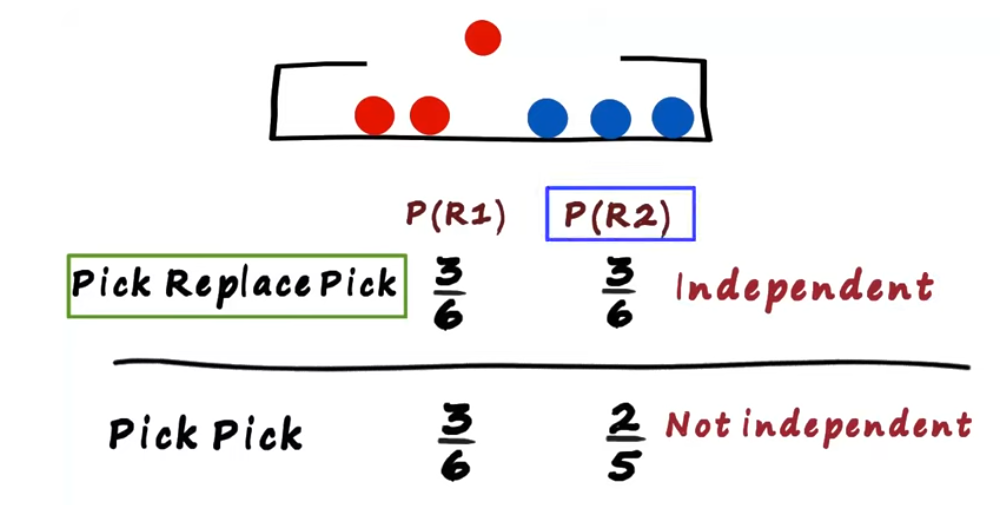 P(R1) P(R2)
Pick Replace Pick 3/6 3/6 Independent
Pick Pick 3/6 2/5 Not independent